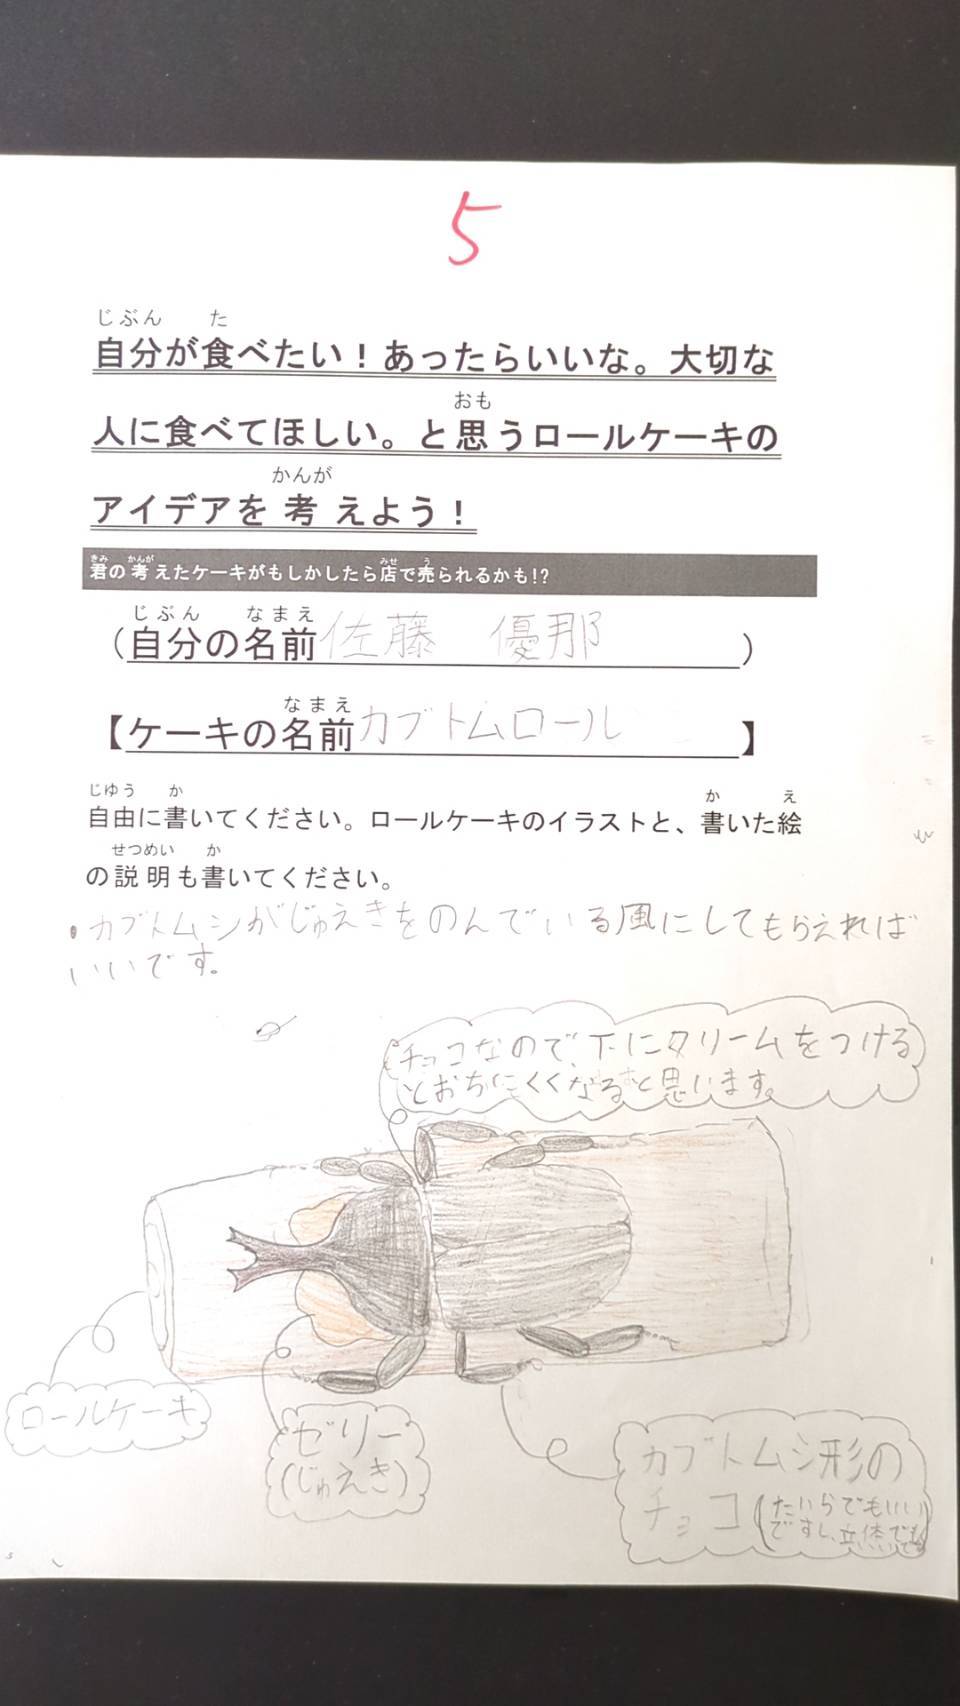 5
じぶん た
自分が食べたい！あったらいいな。大切な
おも
人に食べてほしい。と思うロールケーキの
かんが
アイデアを考えよう！
きみ かんが みせ う
君の考えたケーキがもしかしたら店で売られるかも!?
じぶん なまえ
（自分の名前 佐藤 優那）
なまえ
【ケーキの名前 カブトムロール】
じゆう か か え
自由に書いてください。ロールケーキのイラストと、書いた絵
せつめい か
の説明も書いてください。
・カブトムシがじゅえきをのんでいる風にしてもらえれば
いいです。
チョコなので、下にクリームをつける
とおちにくくなると思います。
ロールケーキ
ゼリー
(じゅえき)
カブトムシ形の
チョコ(たいらでもいい
ですし、立体でも